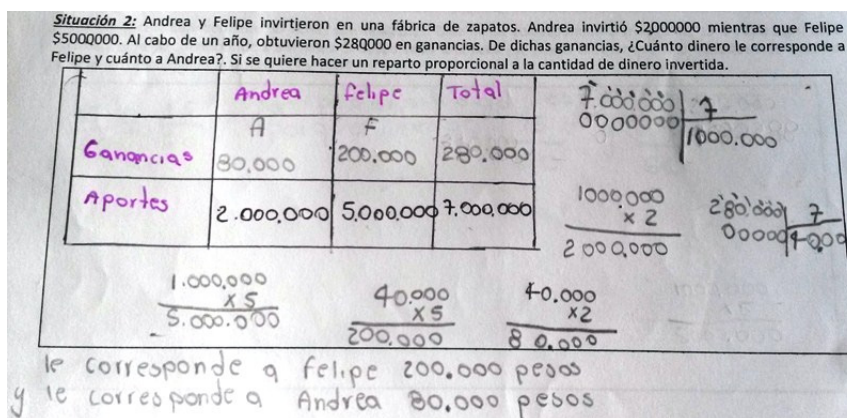 Situación 2: Andrea y Felipe invirtieron en una fábrica de zapatos. Andrea invirtió $2000000 mientras que Felipe
$5000000. Al cabo de un año, obtuvieron $280000 en ganancias. De dichas ganancias, ¿Cuánto dinero le corresponde a
Felipe y cuánto a Andrea?. Si se quiere hacer un reparto proporcional a la cantidad de dinero invertida.
Andrea Felipe Total
A F
Ganancias 80.000 200.000 280.000
Aportes 2.000.000 5.000.000 7.000.000
7.000.000 7
0000000 1000.000
1000.000
x 2
2 000.000
280.000 7
00000 40.00
1.000.000
x 5
5.000.000
40.000
x 5
200.000
40.000
x2
80.000
le corresponde a felipe 200.000 pesos
y le corresponde a Andrea 80.000 pesos